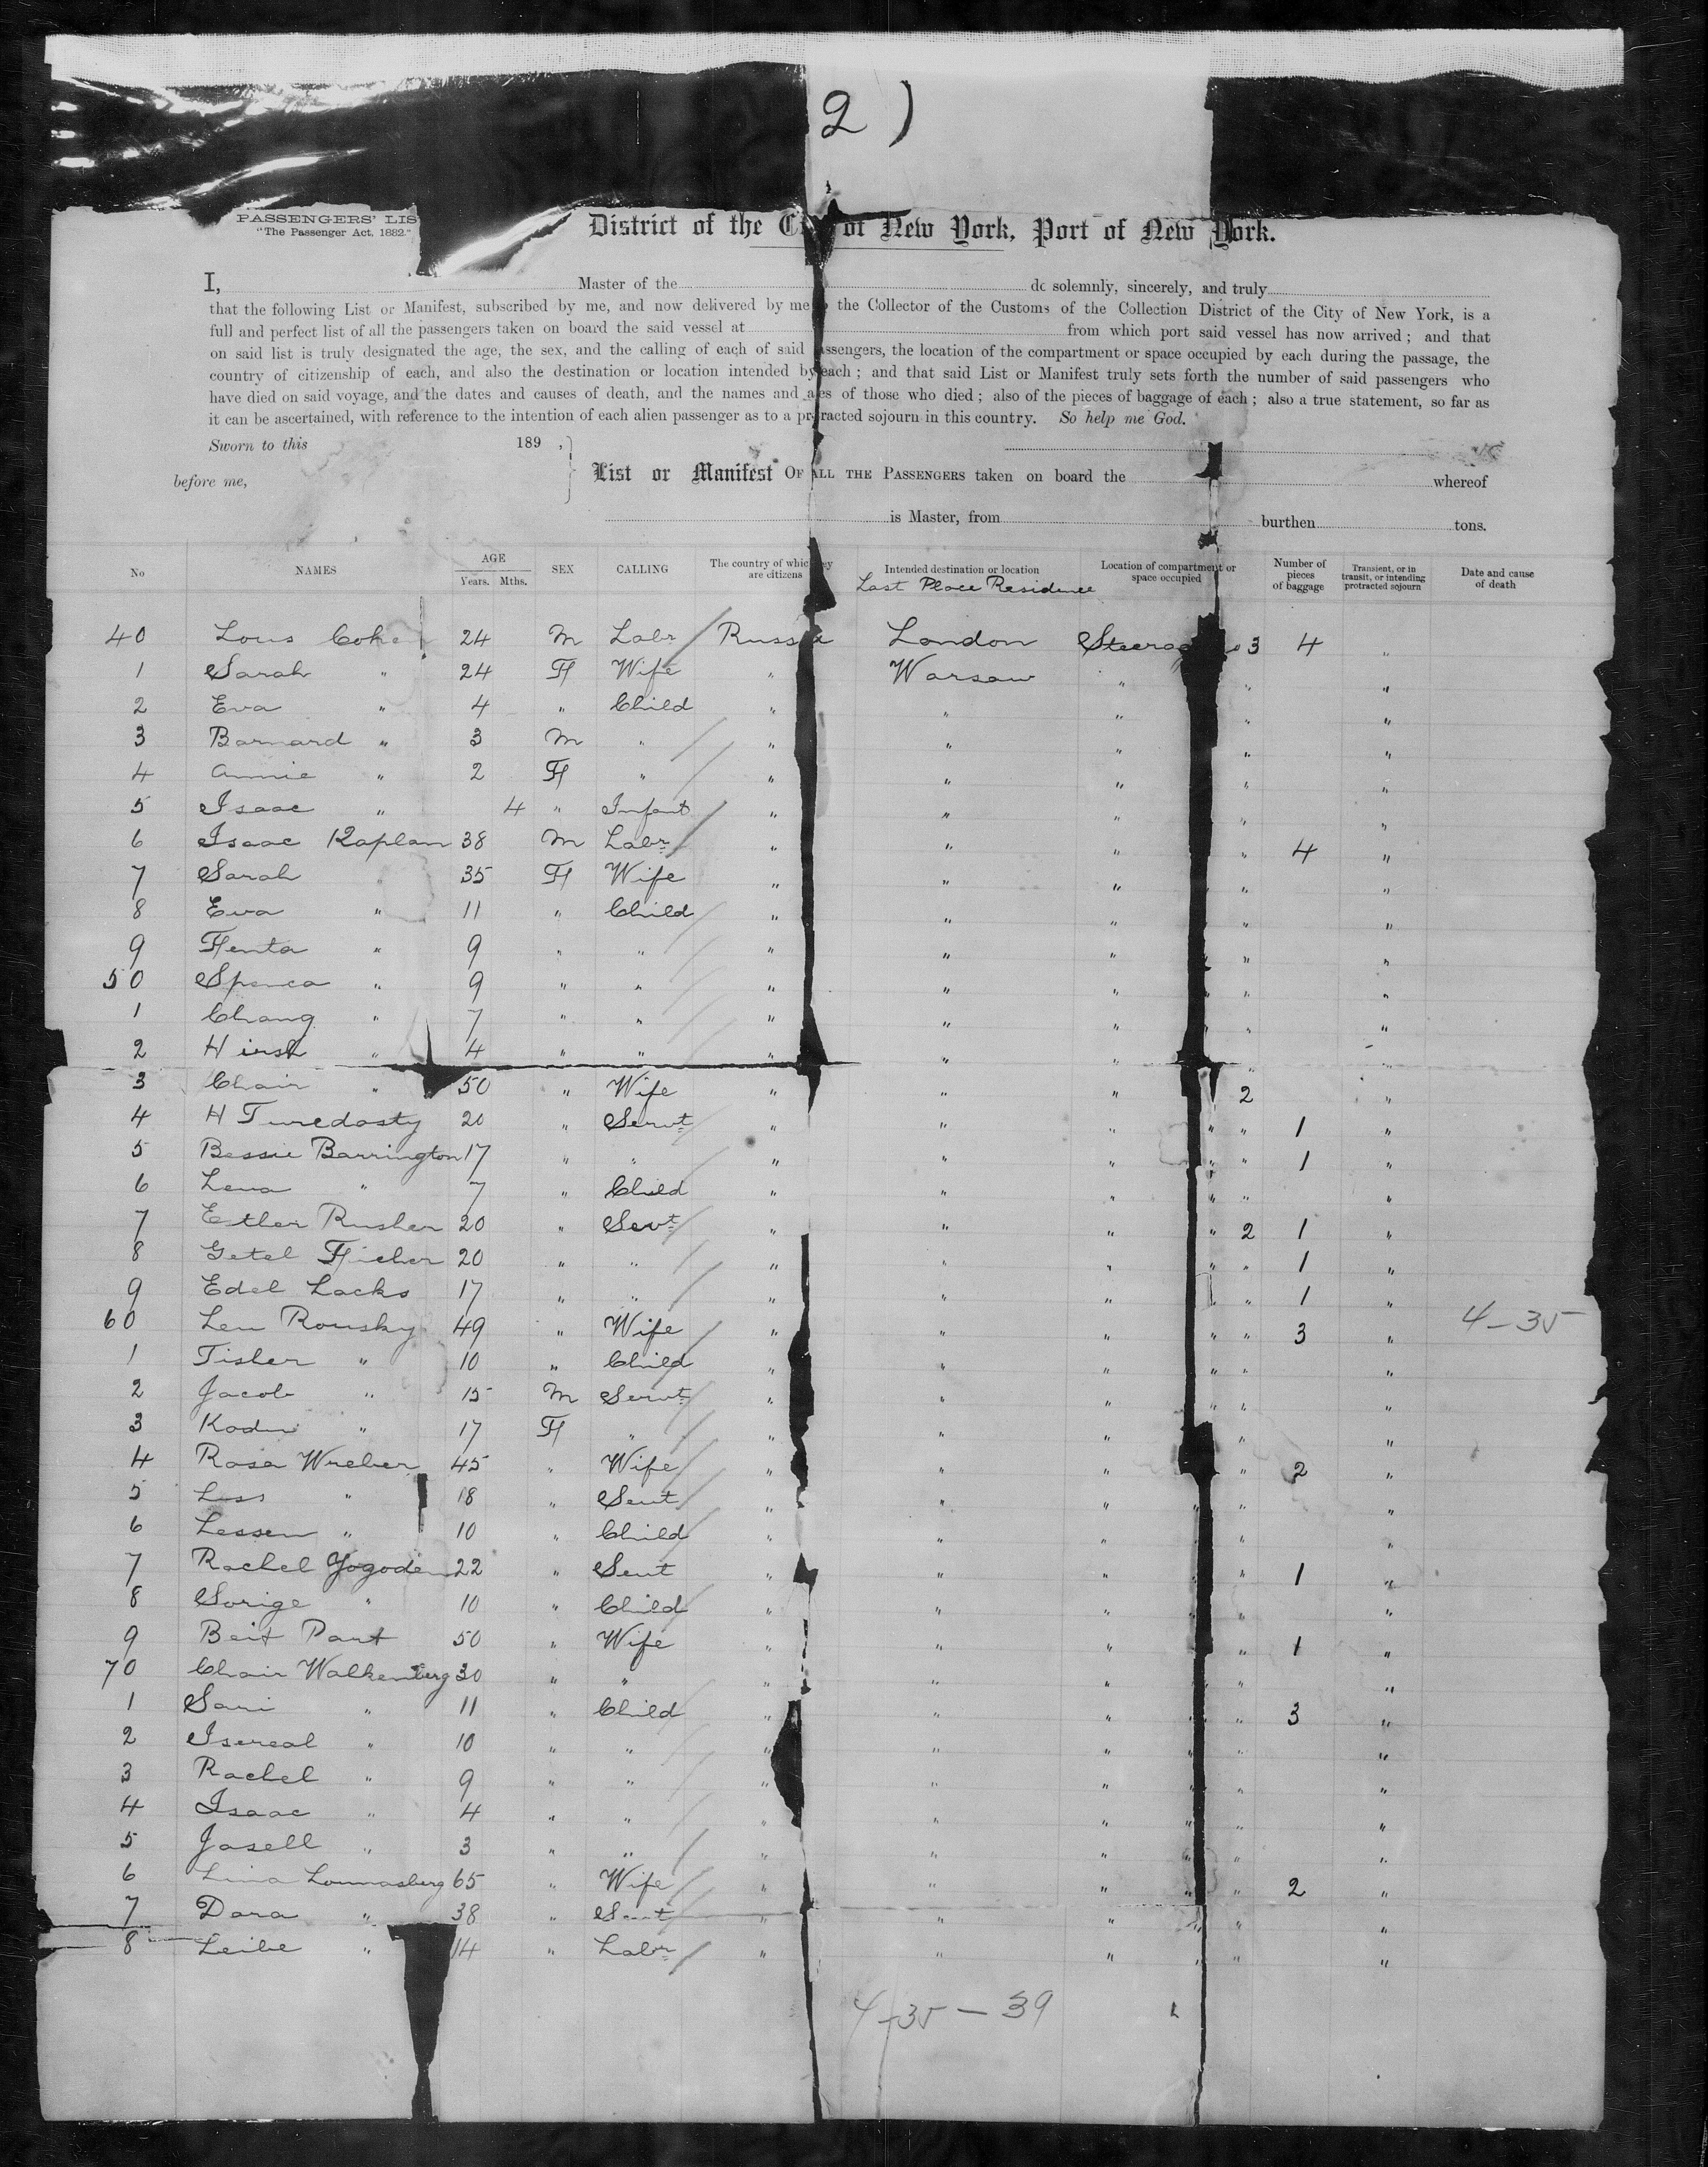 2 )
PASSENGERS' LIS
"The Passenger Act, 1882."
District of the C of New York, Port of New York.
I, Master of the do solemnly, sincerely, and truly
that the following List or Manifest, subscribed by me, and now delivered by me the Collector of the Customs of the Collection District of the City of New York, is a
full and perfect list of all the passengers taken on board the said vessel at from which port said vessel has now arrived; and that
on said list is truly designated the age, the sex, and the calling of each of said assengers, the location of the compartment or space occupied by each during the passage, the
country of citizenship of each, and also the destination or location intended by each; and that said List or Manifest truly sets forth the number of said passengers who
have died on said voyage, and the dates and causes of death, and the names and a es of those who died; also of the pieces of baggage of each; also a true statement, so far as
it can be ascertained, with reference to the intention of each alien passenger as to a pr racted sojourn in this country. So help me God.
Sworn to this 189 ,
before me,
List or Manifest OF ALL THE PASSENGERS taken on board the whereof
is Master, from burthen tons.
No NAMES AGE Years. Mths. SEX CALLING The country of whic ey are citizens Intended destination or location Last Place Residence Location of compartment or space occupied Number of pieces of baggage Transient, or in transit, or intending protracted sojourn Date and cause of death
40 Louis Cohe 24 M Labr Russia London Steerag " 3 4 "
1 Sarah " 24 F Wife " Warsaw " " "
2 Eva " 4 " Child " " " " "
3 Barnard " 3 M " " " " " "
4 Annie " 2 F " " " " " "
5 Isaac " 4 " Infant " " " " "
6 Isaac Kaplan 38 M Labr " " " " 4 "
7 Sarah " 35 F Wife " " " " "
8 Eva " 11 " Child " " " " "
9 Fenta " 9 " " " " " " "
50 Spenca " 9 " " " " " " "
1 Chang " 7 " " " " " " "
2 Hirsh " 4 " " " " " " "
3 Chair " 50 " Wife " " " 2 "
4 H Turedasty 20 " Servt " " " " " 1 "
5 Bessie Barrington 17 " " " " " " " 1 "
6 Lena " 7 " Child " " " " " "
7 Esther Rusher 20 " Servt " " " " 2 1 "
8 Getel Ficher 20 " " " " " " " 1 "
9 Edel Lacks 17 " " " " " " " 1 "
60 Len Rousky 49 " Wife " " " " " 3 " 4-35
1 Tisher " 10 " Child " " " " " "
2 Jacob " 15 M Servt " " " " " "
3 Kodn " 17 F " " " " " "
4 Rosa Wreber 45 " Wife " " " " 2 "
5 Liss " 18 " Sevt " " " " " "
6 Lessen " 10 " Child " " " " "
7 Rachel Yogoden 22 " Sevt " " " " " 1 "
8 Sorige " 10 " Child " " " " " "
9 Beit Pant 50 " Wife " " " " 1 "
70 Chair Walkenberg 30 " " " " " " " "
1 Sari " 11 " Child " " " " " 3 "
2 Isereal " 10 " " " " " " " "
3 Rachel " 9 " " " " " " " "
4 Isaac " 4 " " " " " " " "
5 Jasell " 3 " " " " " " " "
6 Lina Lounasberg 65 " Wife " " " " " 2 "
7 Dora " 38 " Sevt " " " " " "
8 Leibe " 14 " Labr " " " " " "
4-35-39